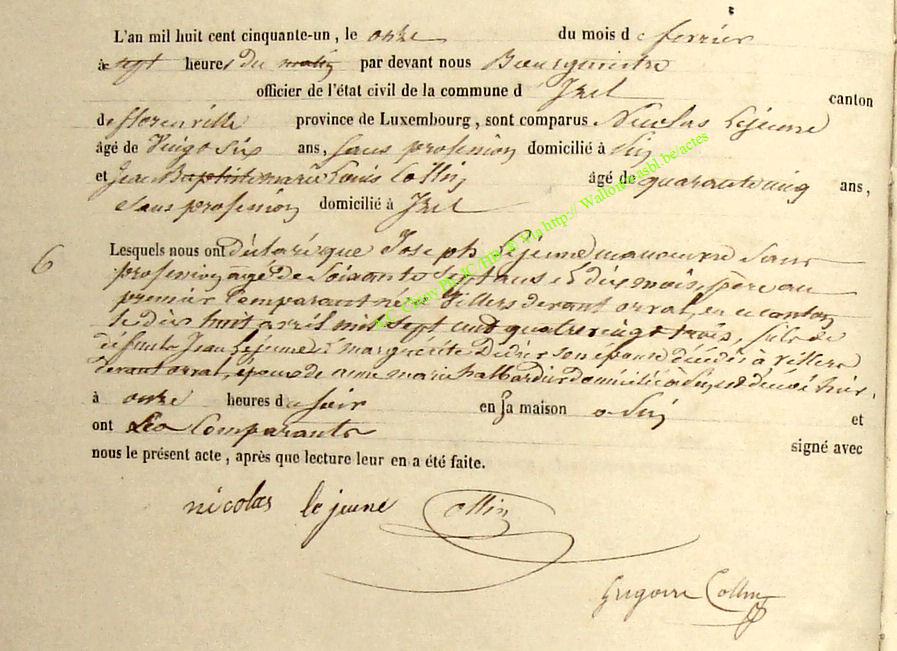 L'an mil huit cent cinquante-un, le onze du mois de fevrier
à sept heures du matin par devant nous Bourgmestre
officier de l'état civil de la commune d'Izel canton
de florenville province de Luxembourg, sont comparus Nicolas Lejeune
âgé de Vingt Six ans, sans profession domicilié à
et Jean Baptiste marie Louis Collin âgé de quarante cinq ans,
sans profession domicilié à Izel
6 Lesquels nous ont déclaré que Joseph Lejeune manoeuvre Sans
profession agé de Soixante Sept ans et dix mois, père au
premier Comparant né à Villers devant orval, en ce canton
le dix huit avril mil sept cent quatre vingt trois, fils de
defunts Jean Lejeune & marguerite Didier son épouse décédés à Villers
devant orval, époux de anne marie domiciliée à est décédé hier,
à onze heures du soir en sa maison à et
ont Les Comparants signé avec
nous le présent acte, après que lecture leur en a été faite.
nicolas lejeune Collin
Grégoire Collin
via http:// Wallonie.asbl.be/actes